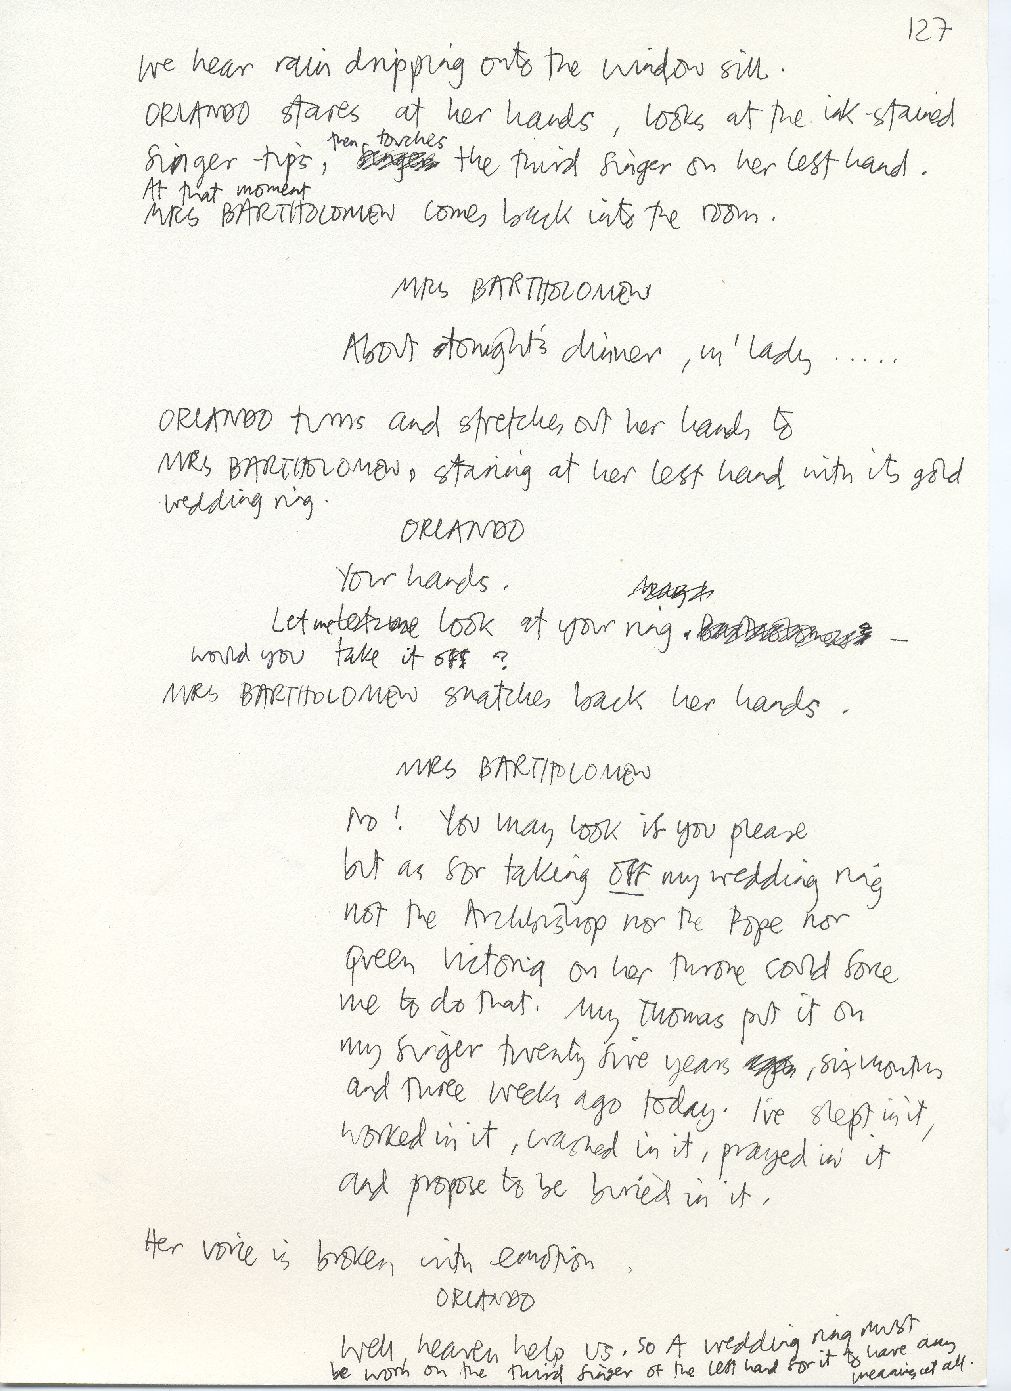 127
We hear rain dripping onto the window sill.
ORLANDO stares at her hands, looks at the ink-stained
then touches
finger-tips, the third finger on her left hand.
At that moment
MRS BARTHOLOMEW comes back into the room.
MRS BARTHOLOMEW
About tonight's dinner, m'lady .....
ORLANDO turns and stretches out her hands to
MRS BARTHOLOMEW, staring at her left hand with its gold
wedding ring.
ORLANDO
Your hands.
Let me look at your ring. –
would you take it off?
MRS BARTHOLOMEW snatches back her hands.
MRS BARTHOLOMEW
No! You may look if you please
but as for taking off my wedding ring
not the Archbishop nor the Pope nor
Queen Victoria on her throne could force
me to do that. My Thomas put it on
my finger twenty five years, six months
and three weeks ago today. I've slept in it,
worked in it, washed in it, prayed in it
and propose to be buried in it.
Her voice is broken with emotion.
ORLANDO
Well, heaven help us. So A wedding ring must
be worn on the third finger of the left hand for it to have any
meaning at all.